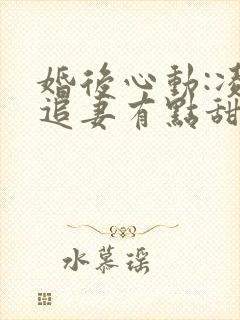 婚後心動:凌
追妻有點甜
水慕瑶